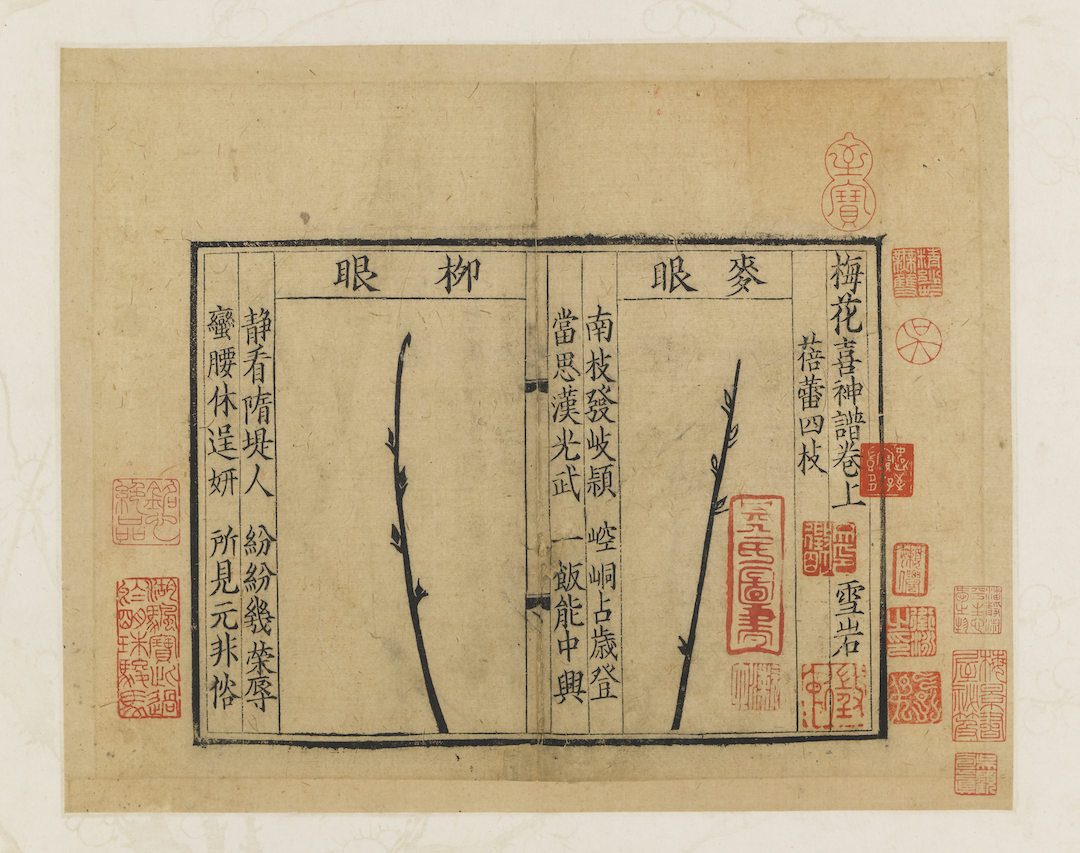 梅花喜神譜卷上
蓓蕾四枝
雪岩
麥眼
南枝發岐穎 崆峒占歲登
當思漢光武 一飯能中興
柳眼
静看隋堤人 紛紛幾榮辱
蠻腰休逞妍 所見元非俗
至寶
吴